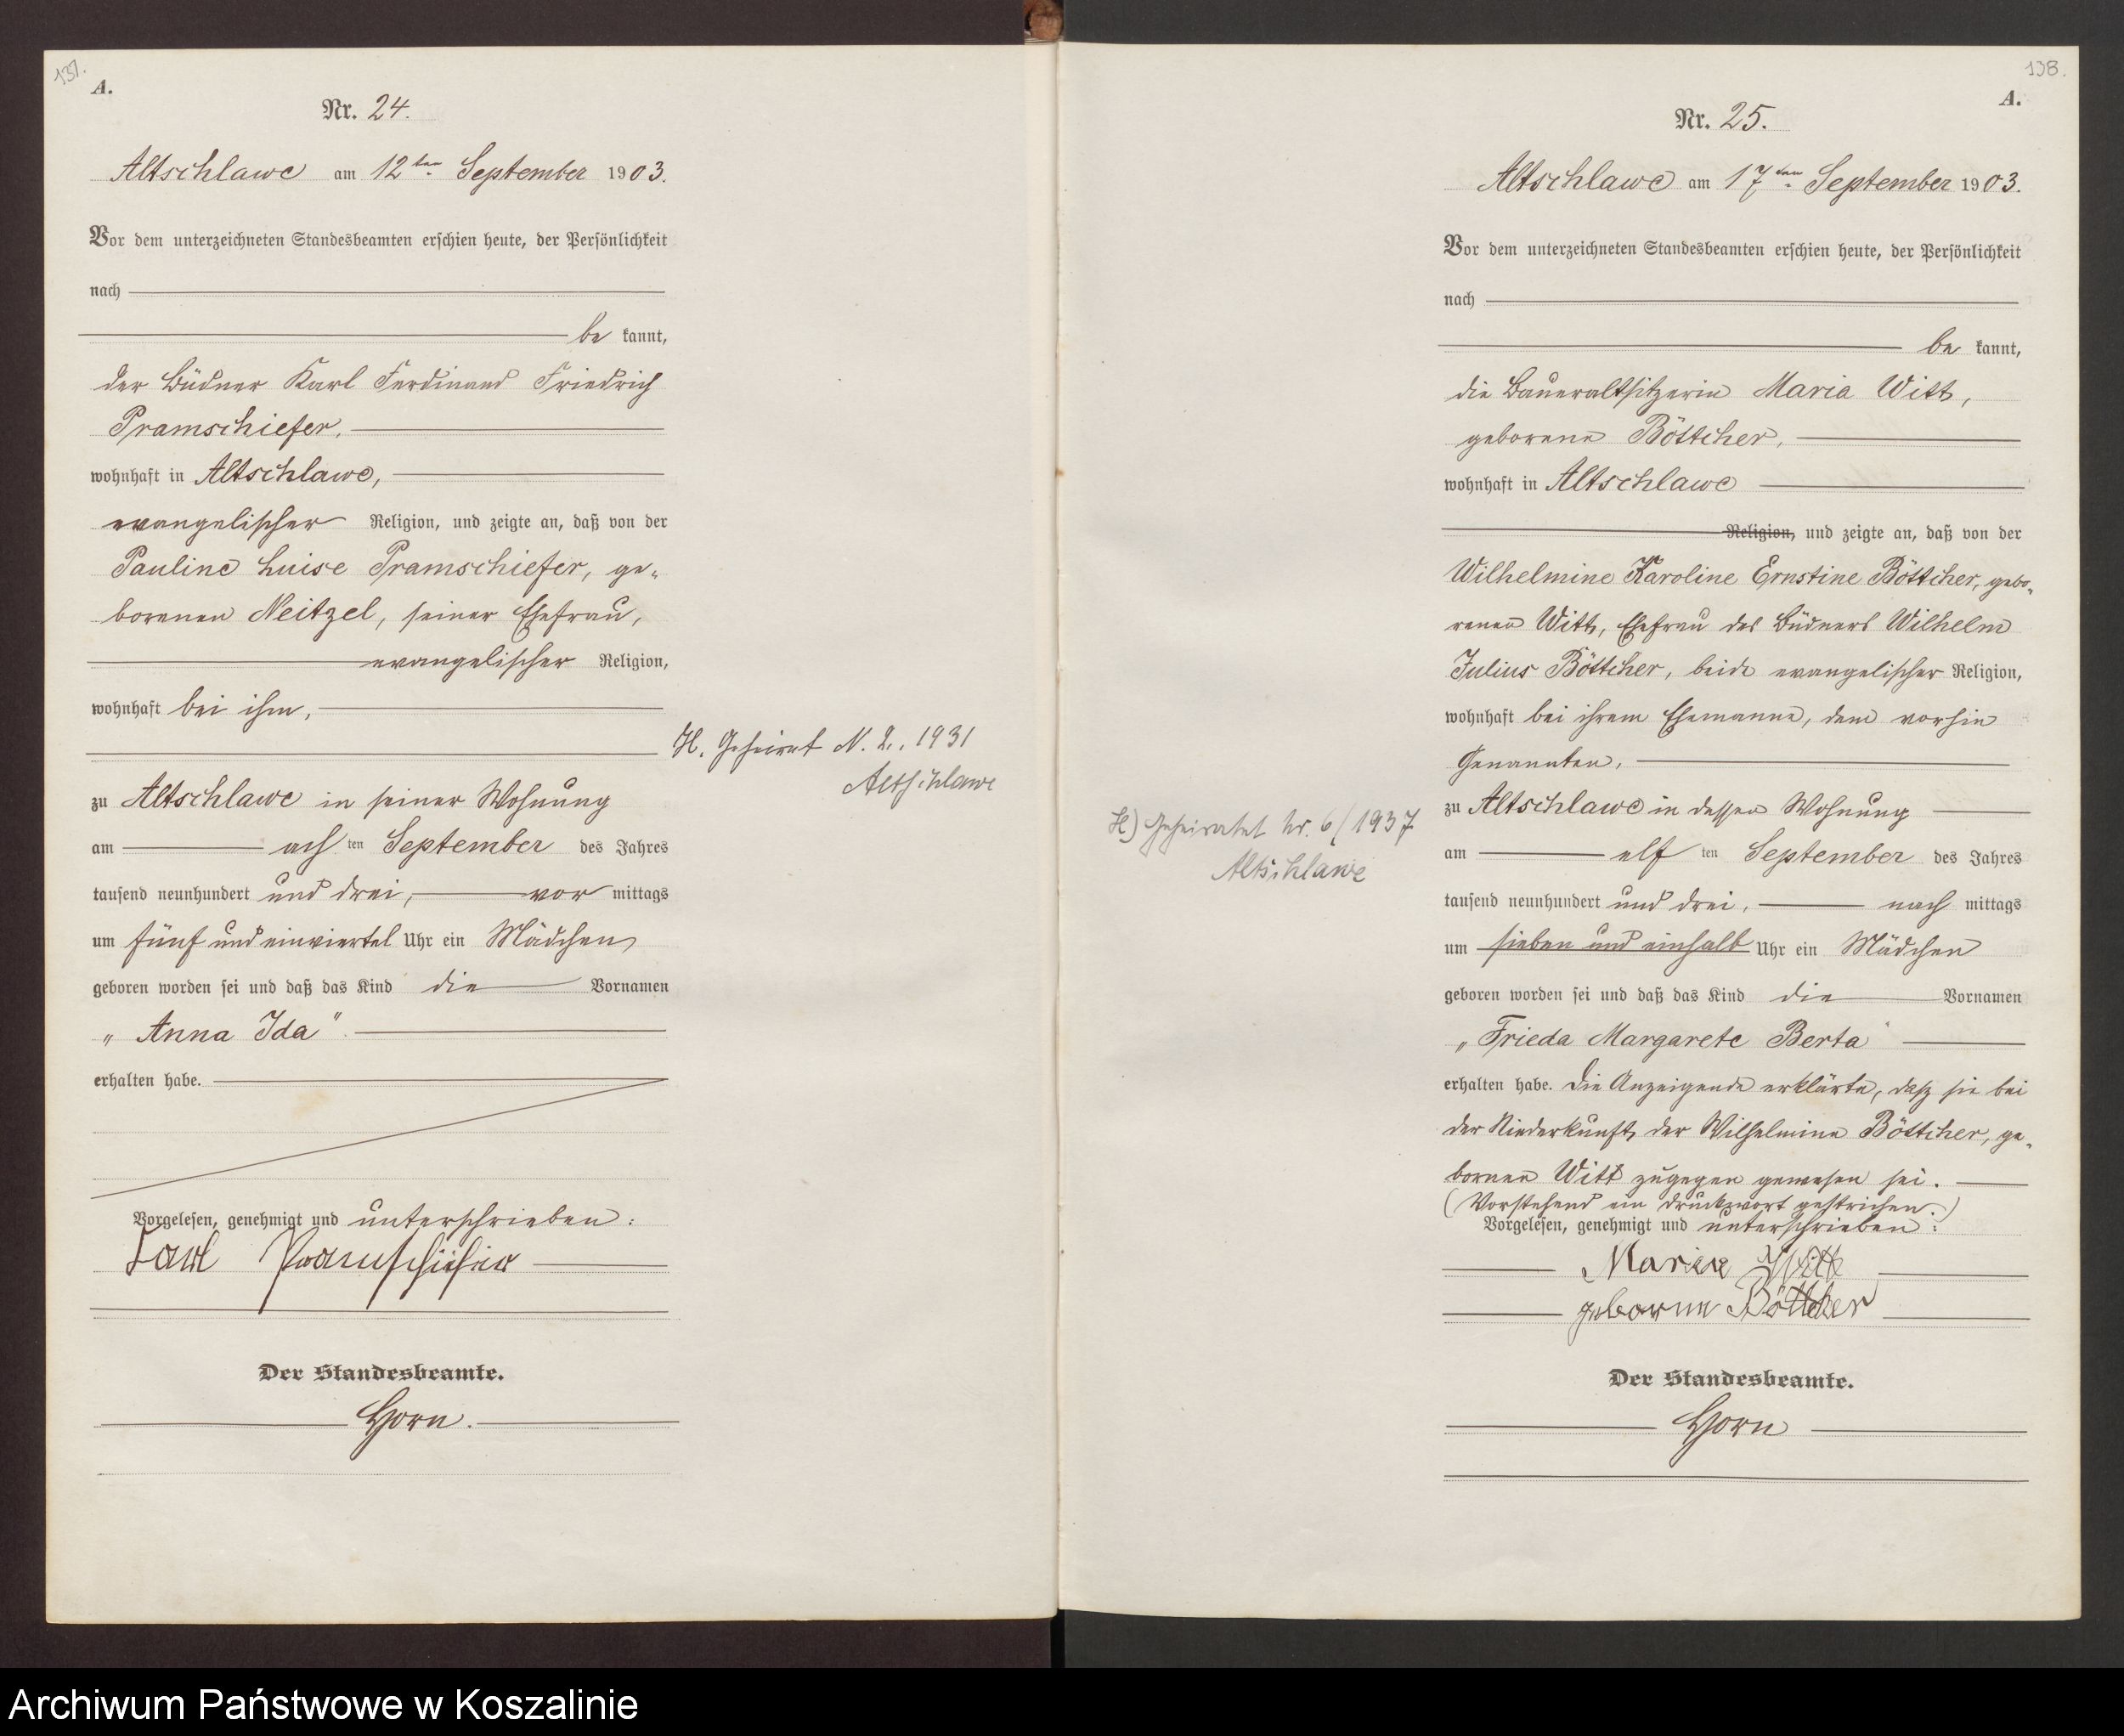 137.
A.
Nr. 24.
Altschlawe am 12ten September 1903.
Vor dem unterzeichneten Standesbeamten erschien heute, der Persönlichkeit
nach
be kannt,
der Büdner Karl Ferdinand Friedrich
Pramschiefer,
wohnhaft in Altschlawe,
evangelischer Religion, und zeigte an, daß von der
Pauline Luise Pramschiefer, ge-
borenen Neitzel, seiner Ehefrau,
evangelischer Religion,
wohnhaft bei ihm,
zu Altschlawe in seiner Wohnung
am ach ten September des Jahres
tausend neunhundert und drei, vor mittags
um fünf und einviertel Uhr ein Mädchen
geboren worden sei und daß das Kind die Vornamen
„Anna Ida"
erhalten habe.
Vorgelesen, genehmigt und unterschrieben:
Karl Pramschiefer
Der Standesbeamte.
Horn.
H. Geheirat N. 2. 1931
Altschlawe
138.
A.
Nr. 25.
Altschlawe am 17ten September 1903.
Vor dem unterzeichneten Standesbeamten erschien heute, der Persönlichkeit
nach
be kannt,
die Baueraltsitzerin Maria Witt,
geborene Böttcher,
wohnhaft in Altschlawe
Religion, und zeigte an, daß von der
Wilhelmine Karoline Ernstine Böttcher, gebo-
renen Witt, Ehefrau des Büdners Wilhelm
Julius Böttcher, beide evangelischer Religion,
wohnhaft bei ihrem Ehemanne, dem vorhin
Genannten,
zu Altschlawe in dessen Wohnung
am elf ten September des Jahres
tausend neunhundert und drei, nach mittags
um sieben und einhalb Uhr ein Mädchen
geboren worden sei und daß das Kind die Vornamen
„Frieda Margarete Berta"
erhalten habe. Die Anzeigende erklärte, daß sie bei
der Niederkunft der Wilhelmine Böttcher, ge-
bornen Witt zugegen gewesen sei.
(Vorstehend ein Druckwort gestrichen.)
Vorgelesen, genehmigt und unterschrieben:
Maria Witt
geborne Böttcher
Der Standesbeamte.
Horn
H) Geheiratet Nr. 6/1937
Altschlawe
Archiwum Państwowe w Koszalinie